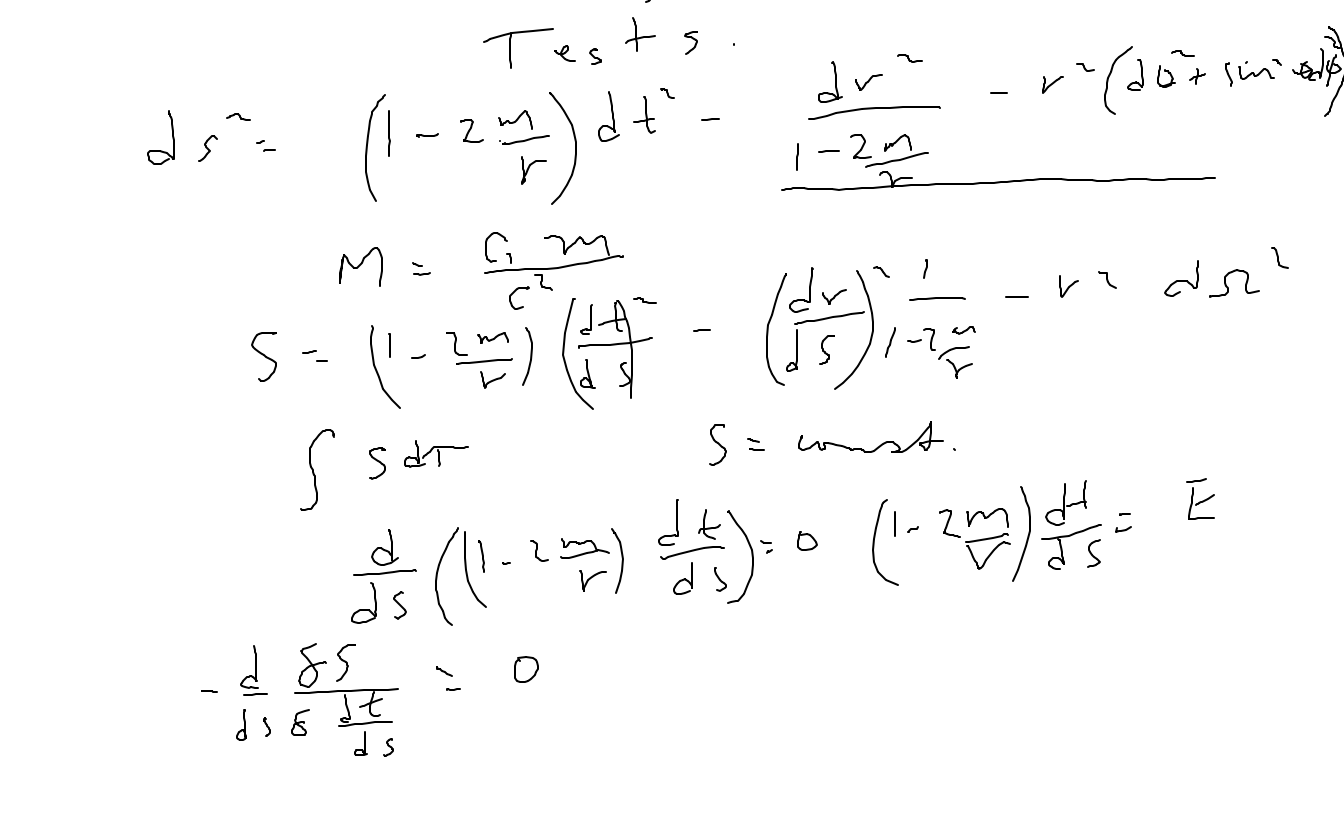 Tests.
ds² = (1 - 2m/r) dt² - dr²/(1 - 2m/r) - r²(dθ² + sin²θdϕ²)
M = Gm/c²
S = (1 - 2m/r)(dt/ds)² - (dr/ds)² 1/(1 - 2m/r) - r² dΩ²
∫ S dτ S = const.
d/ds((1 - 2m/r) dt/ds) = 0 (1 - 2m/r) dt/ds = E
- d/ds δS/(δ dt/ds) = 0